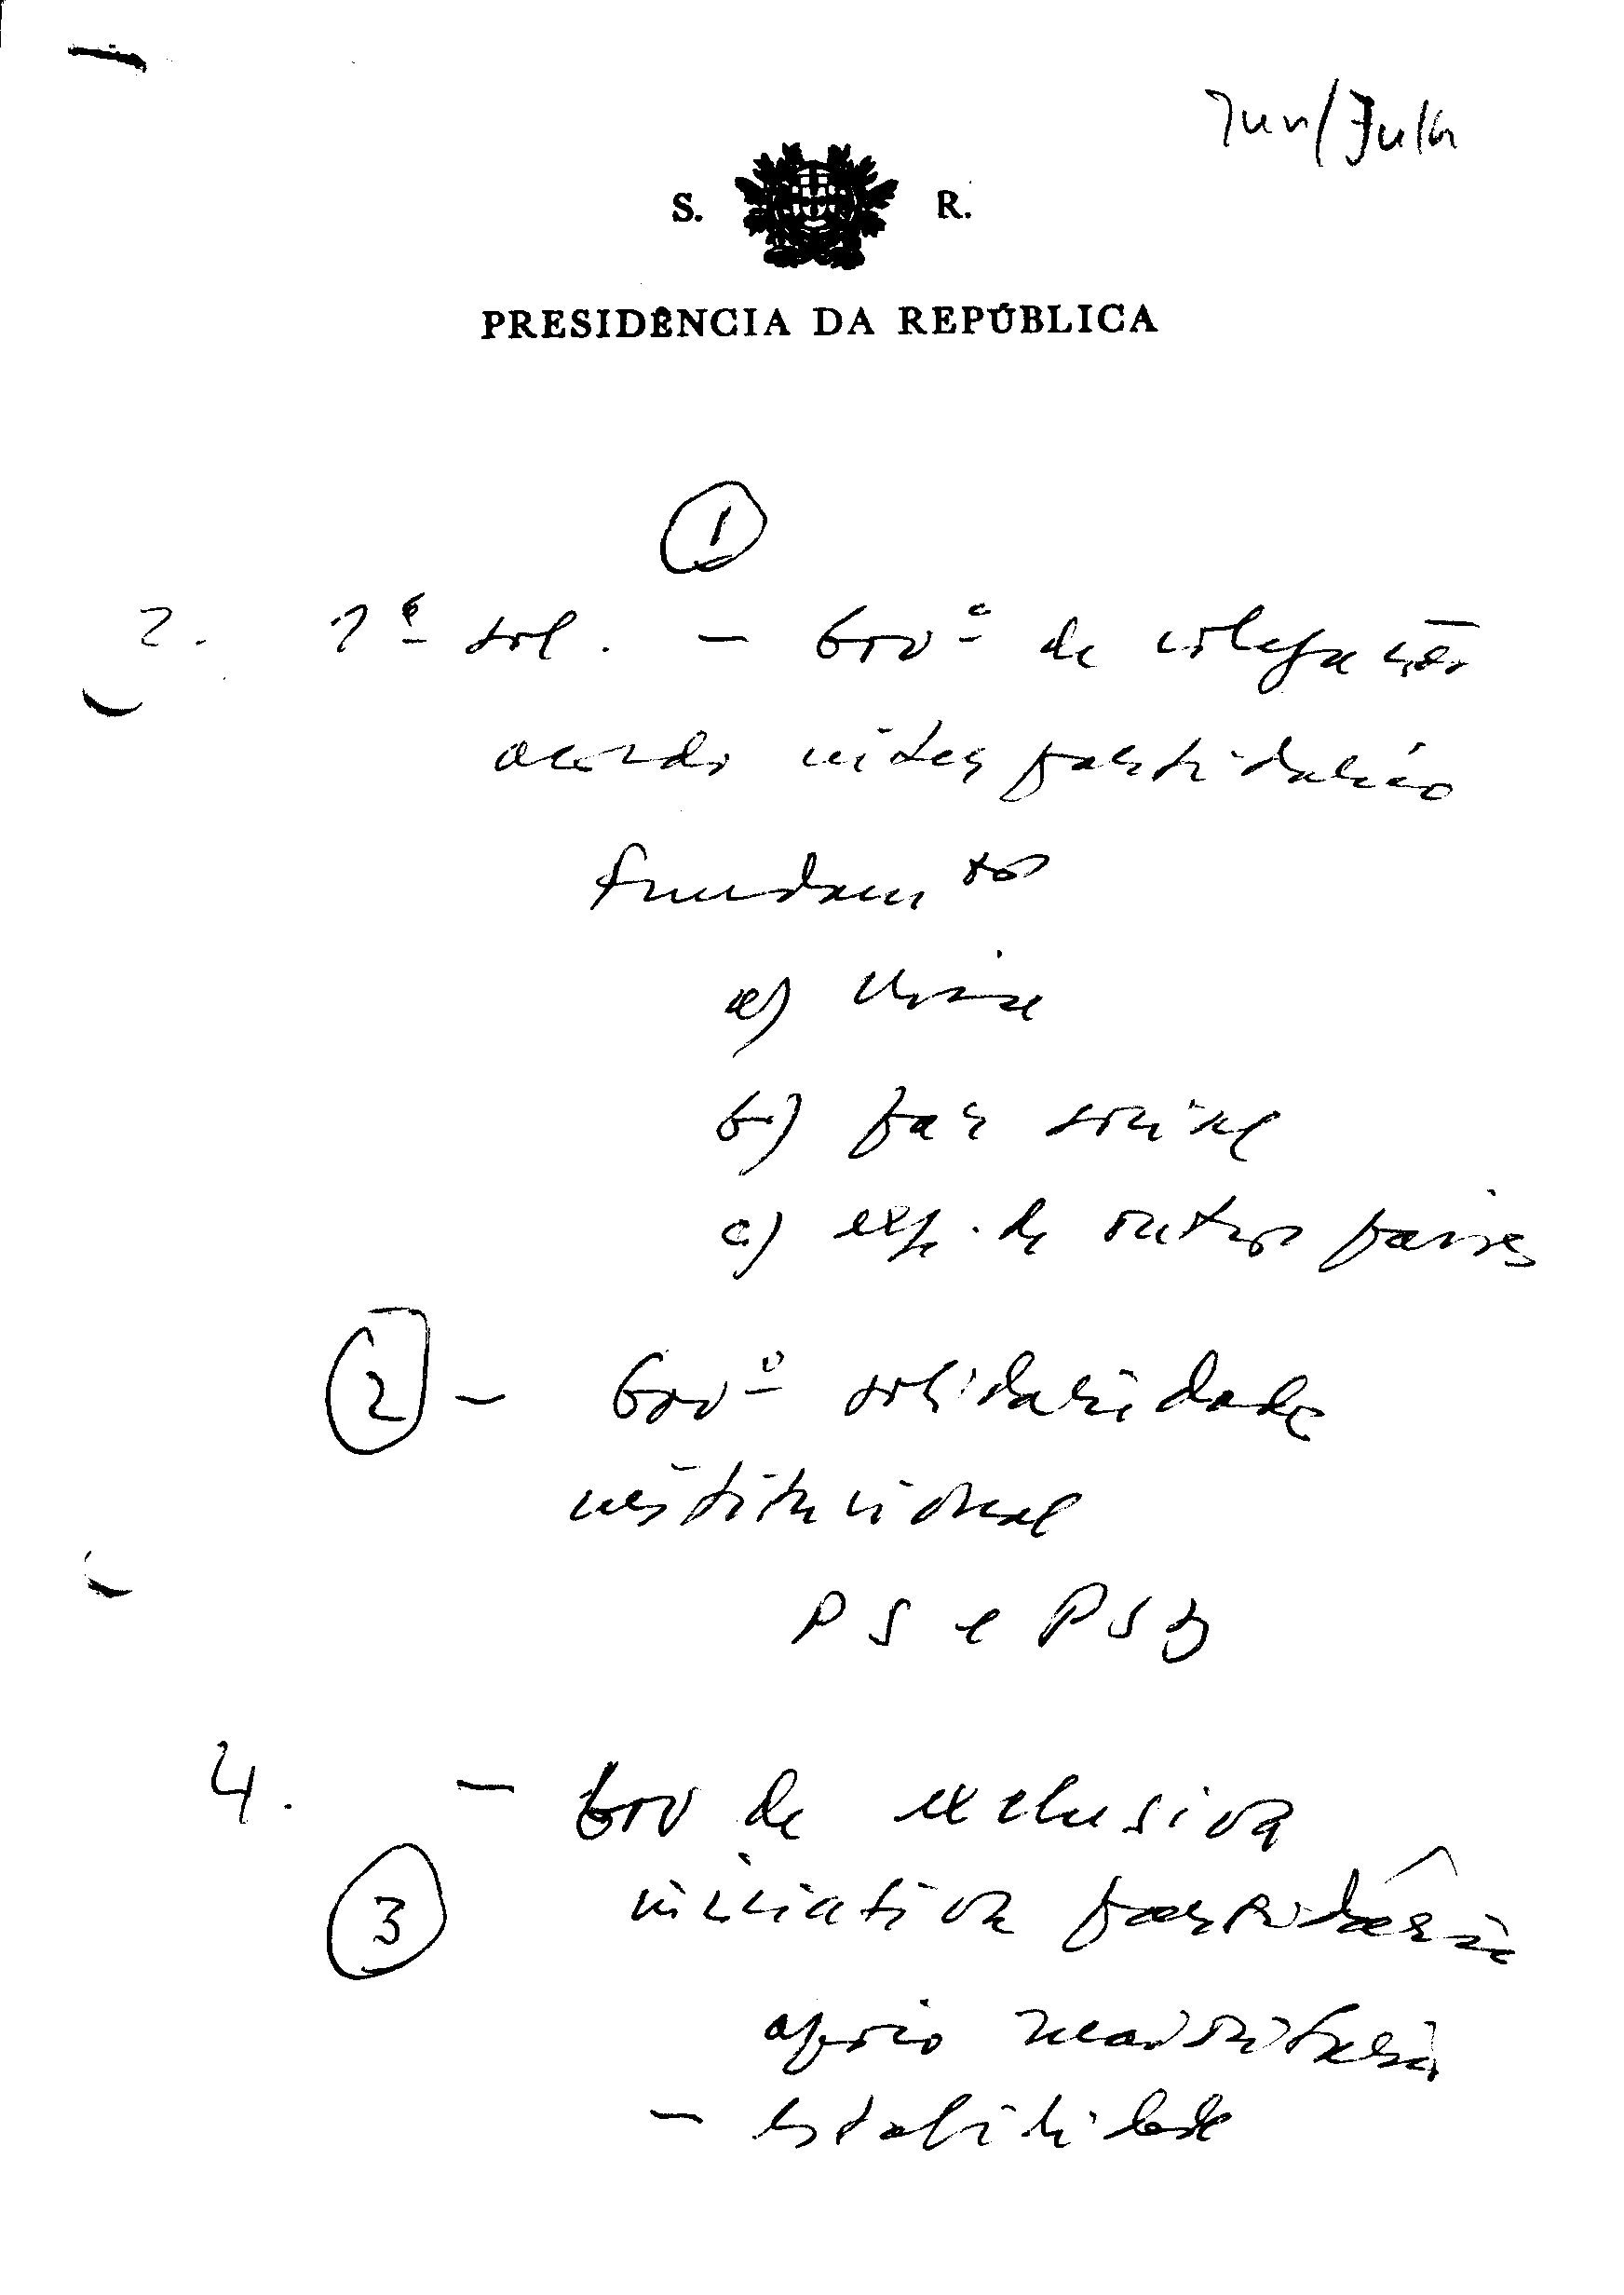 Jun/Julh
S. R.
PRESIDÊNCIA DA REPÚBLICA
1
2. 1ª sol. - Govº de coligação
acordo interpartidário
Fundamtos
a) crise
b) paz social
c) exp. de outros países
2 - Govº solidariedade
institucional
PS e PSD
4. - Gov de exclusiva
3 iniciativa partidária
apoio maioritário
- estabilidade